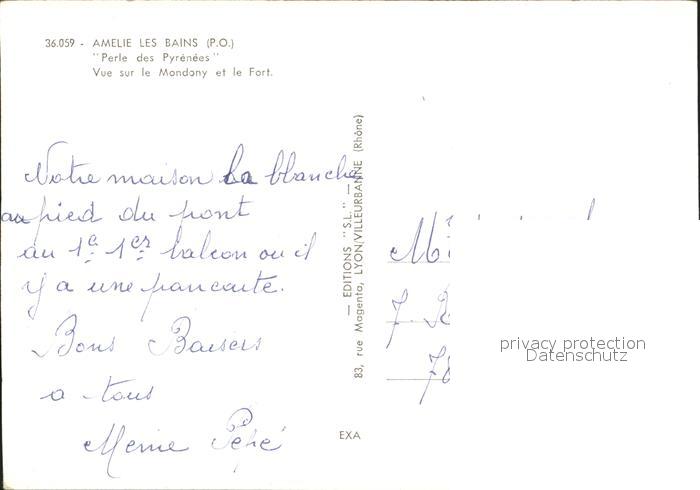 36.059 - AMELIE LES BAINS (P.O.)
"Perle des Pyrénées"
Vue sur le Mondony et le Fort.
Notre maison la blanche
au pied du pont
au 1e 1er balcon ou il
y a une pancarte.
Bons Baisers
a tous
Meme Pépé
— EDITIONS "S.L." —
83, rue Magenta, LYON/VILLEURBANNE (Rhône)
EXA
7
privacy protection
Datenschutz